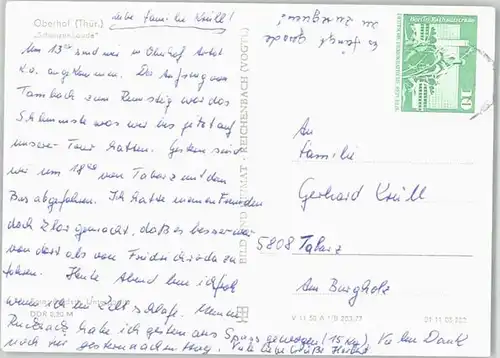 Oberhof (Thür.)
"Schanzenbaude"
Liebe Familie Krüll!
Um 13 sind wir in Oberhof total
k.o. angekommen. Der Aufstieg von
Tambach zum Rennstieg war das
Schlimmste was wir bis jetzt auf
unserer Tour hatten. Gestern sind
wir um 18 von Tabarz mit dem
Bus abgefahren. Ich hatte meinen Freunden
doch klar gemacht, daß es besser war
von dort als von Friedrichroda zu
fahren. Heute Abend bin ich froh
wenn ich im Zelt schlafe. Meinen
DDR 0,20 M
Rucksack habe ich gestern aus Spass gewogen (15 kg) Vielen Dank
noch für gestern nachmittag. Viele liebe Grüße Herbert
Es fängt gerade
zu regnen!
BILD UND HEIMAT · REICHENBACH (VOGTL)
DEUTSCHE DEMOKRATISCHE REPUBLIK
10
An
Familie
Gerhard Krüll
5808 Tabarz
Am Burgholz
V 11 50 A 1/B
01 11 05 302